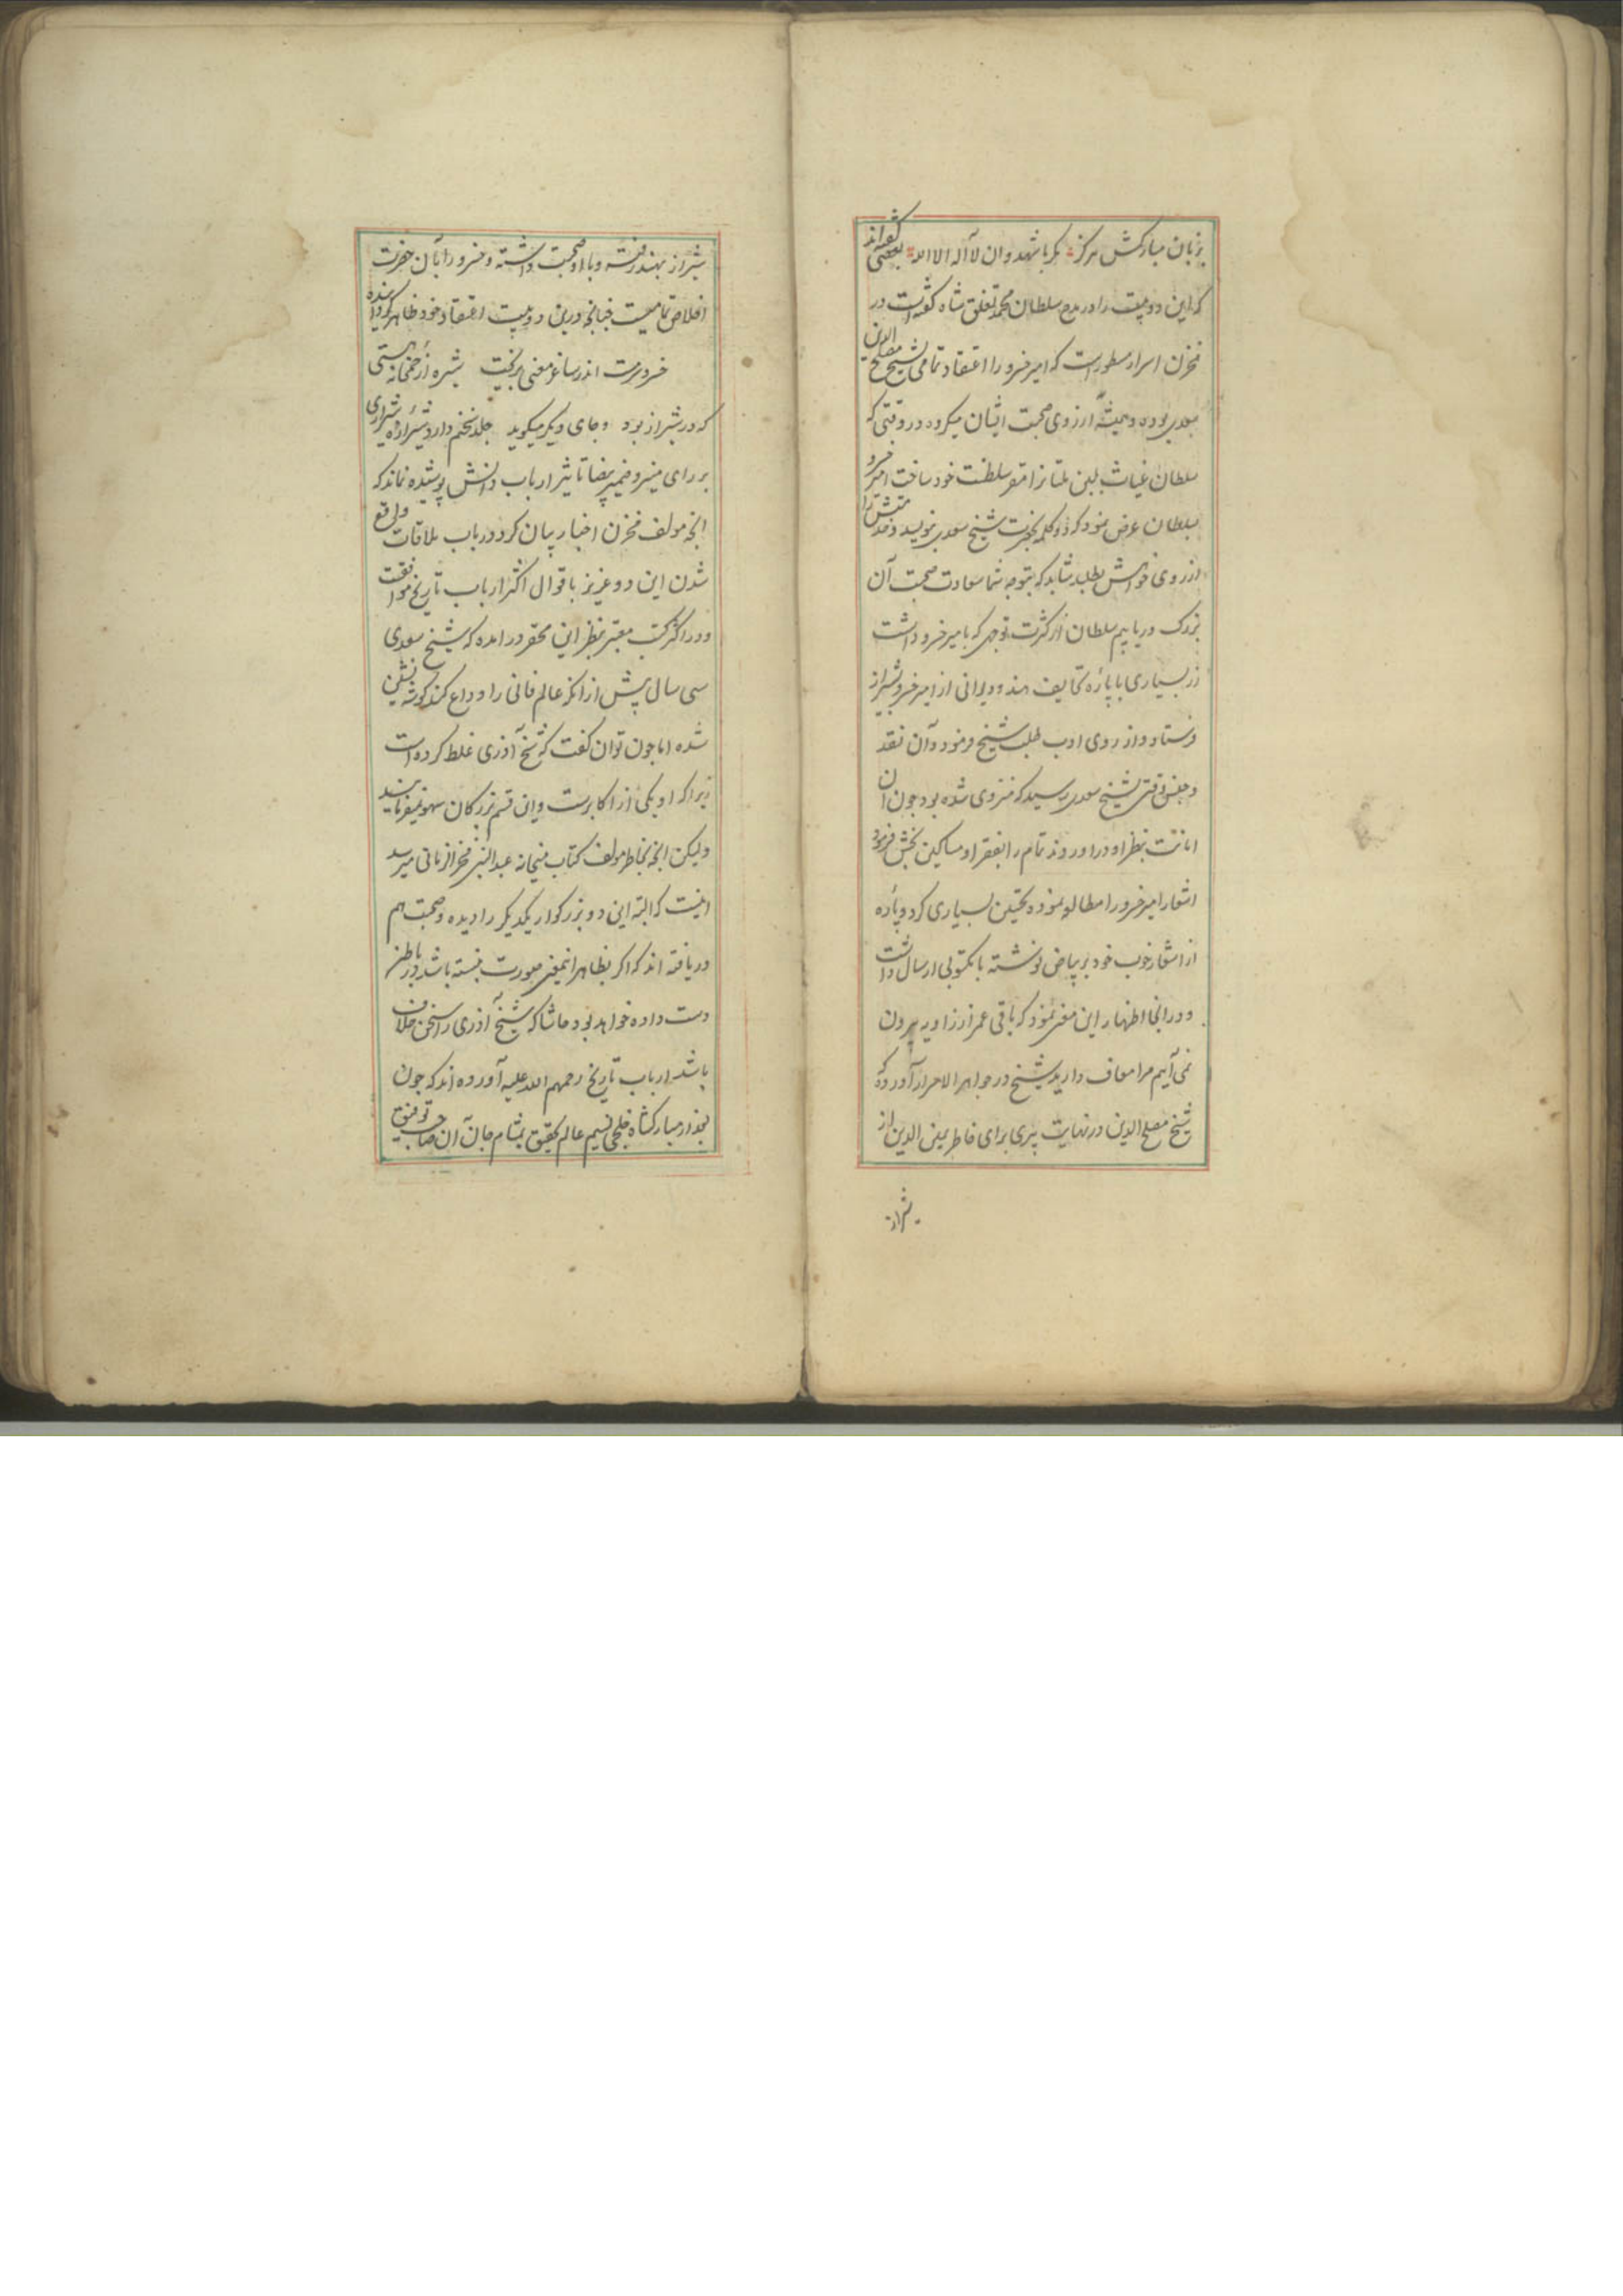 بزبان مبارکش هرکز مکر باشهد وان لا آله الا الله بعضی گفته‌اند
که این دو بیت را در مدح سلطان محمد تغلق شاه کفته است در
مخزن اسرار مسطور است که امیر خسرو را اعتقاد تمامی بشیخ مصلح الدین
سعدی بوده و همیشه آرزوی صحبت ایشان میکرده در وقتی که
سلطان غیاث بلبن ملتان را مقر سلطنت خود ساخت امیر خسرو
بسلطان عرض نمود که دو کلمه بحضرت شیخ سعدی بنویسید و خدمتش را
از روی خواهش بطلبد شاید که بتوجه شما سعادت صحبت آن
بزرک دریابیم سلطان از کثرت توجهی که با میر خسرو داشت
زر بسیاری با پاره تحایف هند و دیوانی از امیر خسرو بشیراز
فرستاد و از روی ادب طلب شیخ فرمود و آن نقد
و جنس وقتی بشیخ سعدی رسید که منزوی شده بود چون ان
امانت بنظر او در اوردند تمام را بفقرا و مساکین بخش فرمود
اشعار امیر خسرو را مطالعه نموده تحسین بسیاری کرد و پاره
از اشعار خوب خود بر بیاض نوشته با مکتوبی ارسال داشت
و درانجا اظهار این معنی نمود که باقی عمر از زاویه بیرون
نمی آیم مرا معاف دارید شیخ در جواهر الاسرار آورده که
شیخ مصلح الدین در نهایت پیری برای خاطر یمین الدین از
شیراز
شیراز بهند رفته و با او صحبت داشته و خسرو را بآن حضرت
اخلاص تمامیست چنانچه درین دو بیت اعتقاد خود ظاهر کردانیده
خسرو سرمست اندر ساغر معنی بریخت شیره از خمخانه مستی
که در شیراز بود و جای دیکر میکوید جلد سخنم دارد شیرازه شیرازی
بر رای منیر و ضمیر بیضا تاثیر ارباب دانش پوشیده نماند که
انچه مولف مخزن اخبار بیان کرد در باب ملاقات واقع
شدن این دو عزیز باقوال اکثر ارباب تاریخ موافقست
و در اکثر کتب معتبر بنظر این محقر در امده که شیخ سعدی
سی سال پیش ازانکه عالم فانی را وداع کند کوشه نشین
شده اما چون توان کفت که شیخ آذری غلط کرده است
زیرا که او یکی از اکابرست و این قسم بزرکان سهو نمیفرمایند
ولیکن انچه بخاطر مولف کتاب میخانه عبدالنبی فخرالزمانی میرسد
اینست که البته این دو بزرکوار یکدیکر را دیده و صحبت هم
دریافته اند که اکر بظاهر اینمعنی صورت نبسته باشد در باطن
دست داده خواهد بود حاشا که شیخ آذری را سخن خلاف
باشد ارباب تاریخ رحمهم الله علیه آورده اند که چون
بعد از مبارکشاه خلجی نسیم عالم تحقیق بمشام جان آن صاحب توفیق